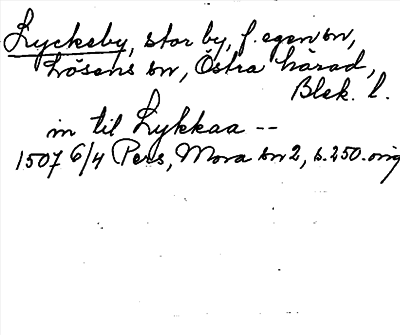 Lyckeby, stor by, f. egen sn,
Lösens sn, Östra härad,
Blek. l.
in til Lykkaa --
1507 6/4 Pers, Mora sn 2, s. 250. orig